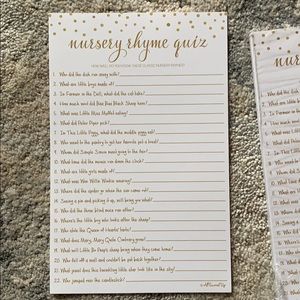 nursery rhyme quiz
HOW WELL DO YOU KNOW THESE CLASSIC NURSERY RHYMES?
1. Who did the dish run away with?
2. What are little boys made of?
3. In Farmer in the Dell, what did the cat take?
4. How much wool did Baa Baa Black Sheep have?
5. What was Little Miss Muffet eating?
6. What did Peter Piper pick?
7. In This Little Piggy, what did the middle piggy eat?
8. Who went to the pantry to get her favorite dog a bone?
9. Whom did Simple Simon meet going to the fair?
10. What time did the mouse run down the clock?
11. What are little girls made of?
12. What was Wee Willie Winkie wearing?
13. Where did the spider go when the sun came out?
14. Seeing a pin and picking it up, will bring you what?
15. Who did the three blind mice run after?
16. Where's the little boy who looks after the sheep?
17. What did the Queen of Hearts bake?
18. What does Mary, Mary Quite Contrary grow?
19. What will Little Bo Peep's sheep bring when they come home?
20. Who fell off a wall and couldn't be put back together?
21. What jewel does this twinkling little star look like in the sky?
22. Who jumped over the candlestick?